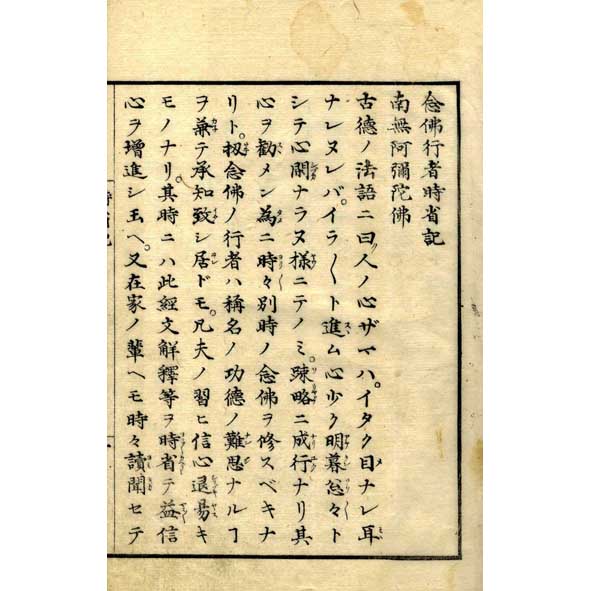 念佛行者時省記
南無阿彌陀佛
古德ノ法語ニ曰人ノ心ザマハ。イタク目ナレ耳
ナレヌレバ。イラ〳〵ト進ム心少ク明暮怱々ト
シテ心閑ナラヌ様ニテノミ。疎略ニ成行ナリ其
心ヲ勸メン為ニ時々別時ノ念佛ヲ修スベキナ
リト。扨念佛ノ行者ハ稱名ノ功德ノ難思ナルヿ
ヲ兼テ承知致シ居ドモ。凡夫ノ習ヒ信心退易キ
モノナリ。其時ニハ此經文解釋等ヲ時省テ益信
心ヲ增進シ玉ヘ。又在家ノ輩ヘモ時々讀聞セテ